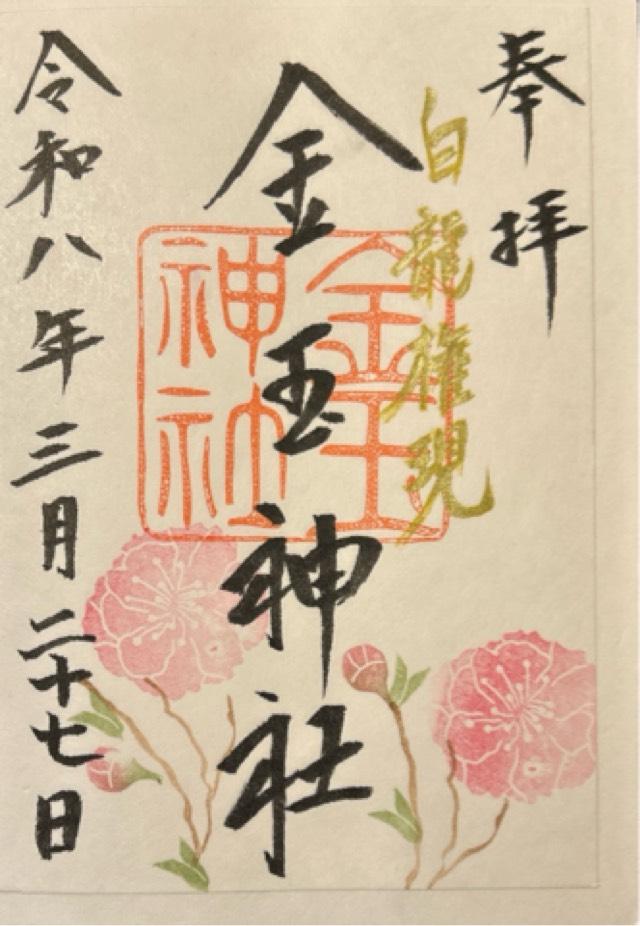 奉拝
白龍権現
金玉神社
金玉神社
令和八年三月二十七日